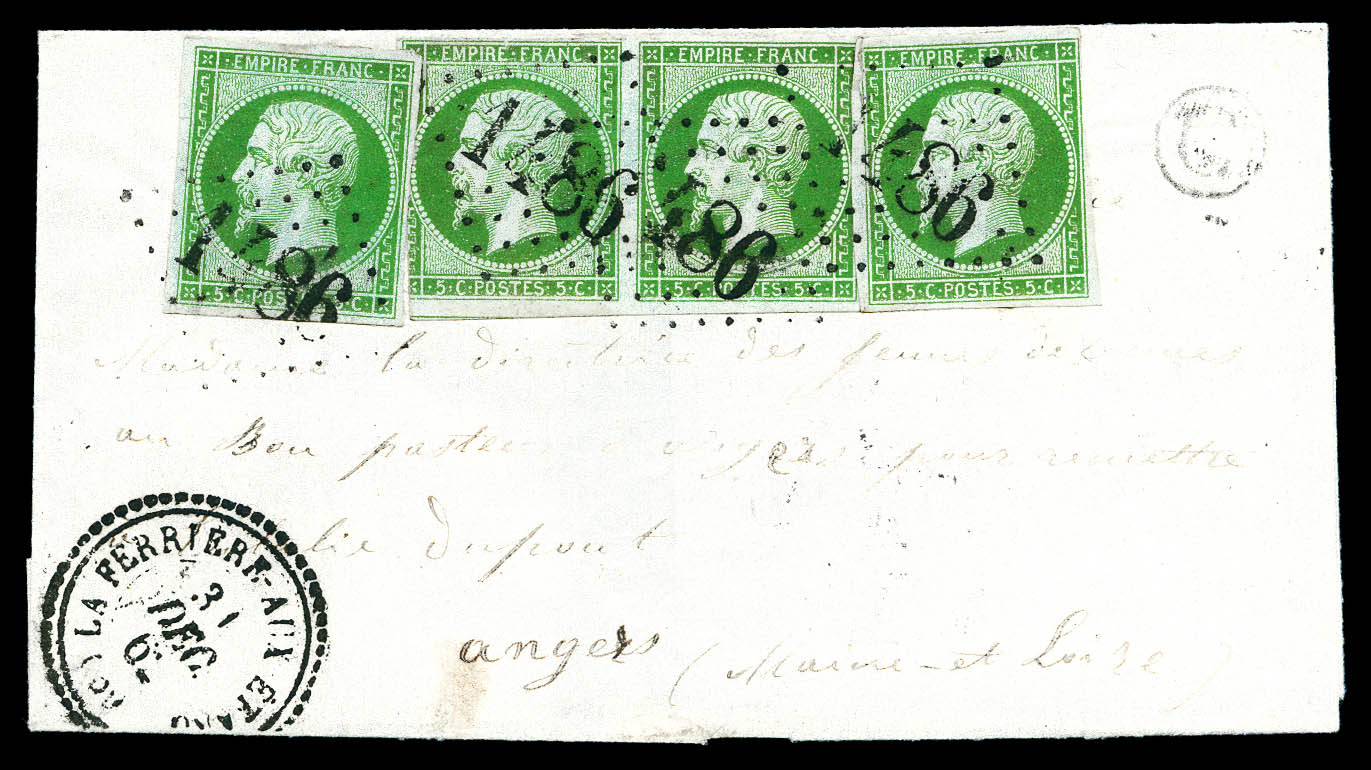 EMPIRE · FRANC · EMPIRE · FRANC · EMPIRE · FRANC · EMPIRE · FRANC ·
1486 1486 1486 1486
5 · C · POSTES · 5 · C · 5 · C · POSTES · 5 · C · 5 · C · POSTES · 5 · C · 5 · C · POSTES · 5 · C ·
C
Madame la directrice des jeunes
au Bon pasteur à angers pour remettre
dupont
angers (Maine-et Loire)
LA FERRIÈRE-AUX ETANG
31
DEC.